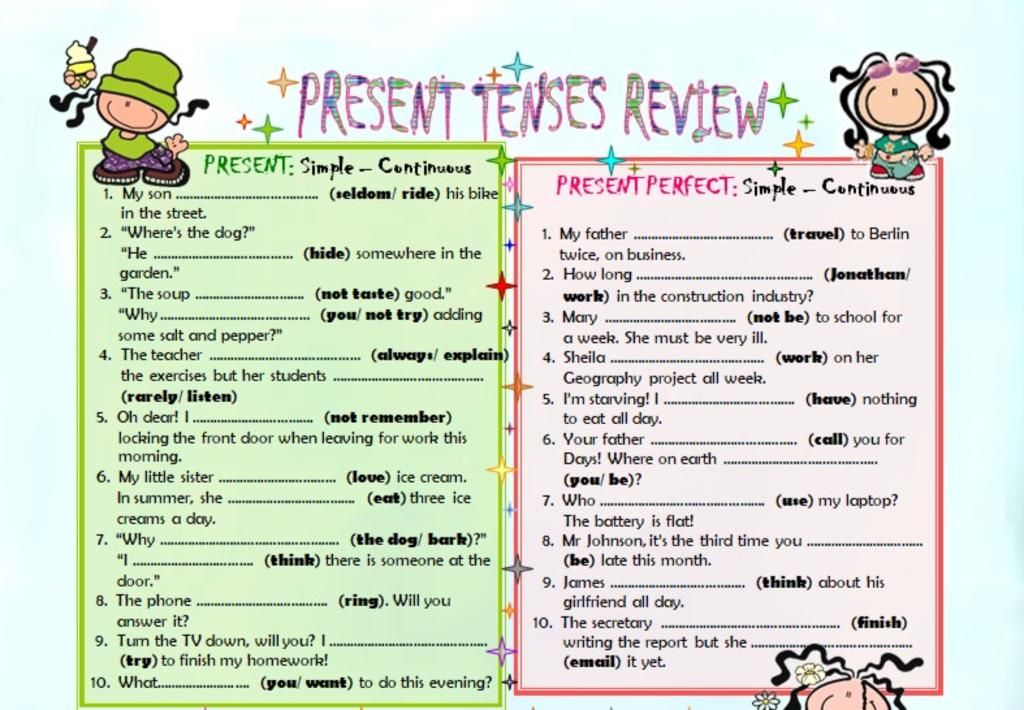 PRESENT TENSES REVIEW
PRESENT: Simple – Continuous
1. My son ........................................ (seldom/ ride) his bike
in the street.
2. “Where's the dog?”
“He ....................................... (hide) somewhere in the
garden.”
3. “The soup .............................. (not taste) good.”
“Why ......................................... (you/ not try) adding
some salt and pepper?”
4. The teacher .......................................... (always/ explain)
the exercises but her students ..........................................
(rarely/ listen)
5. Oh dear! I .................................. (not remember)
locking the front door when leaving for work this
morning.
6. My little sister ................................ (love) ice cream.
In summer, she ........................................... (eat) three ice
creams a day.
7. “Why .................................................. (the dog/ bark)?”
“I ................................. (think) there is someone at the
door.”
8. The phone .................................... (ring). Will you
answer it?
9. Turn the TV down, will you? I ............................................
(try) to finish my homework!
10. What......................... (you/ want) to do this evening?
PRESENT PERFECT: Simple – Continuous
1. My father ....................................... (travel) to Berlin
twice, on business.
2. How long ................................................. (Jonathan/
work) in the construction industry?
3. Mary .................................... (not be) to school for
a week. She must be very ill.
4. Sheila ........................................... (work) on her
Geography project all week.
5. I'm starving! I .................................... (have) nothing
to eat all day.
6. Your father ......................................... (call) you for
Days! Where on earth ...........................................
(you/ be)?
7. Who .............................................. (use) my laptop?
The battery is flat!
8. Mr Johnson, it's the third time you ................................
(be) late this month.
9. James ..................................... (think) about his
girlfriend all day.
10. The secretary .................................................. (finish)
writing the report but she .............................................
(email) it yet.